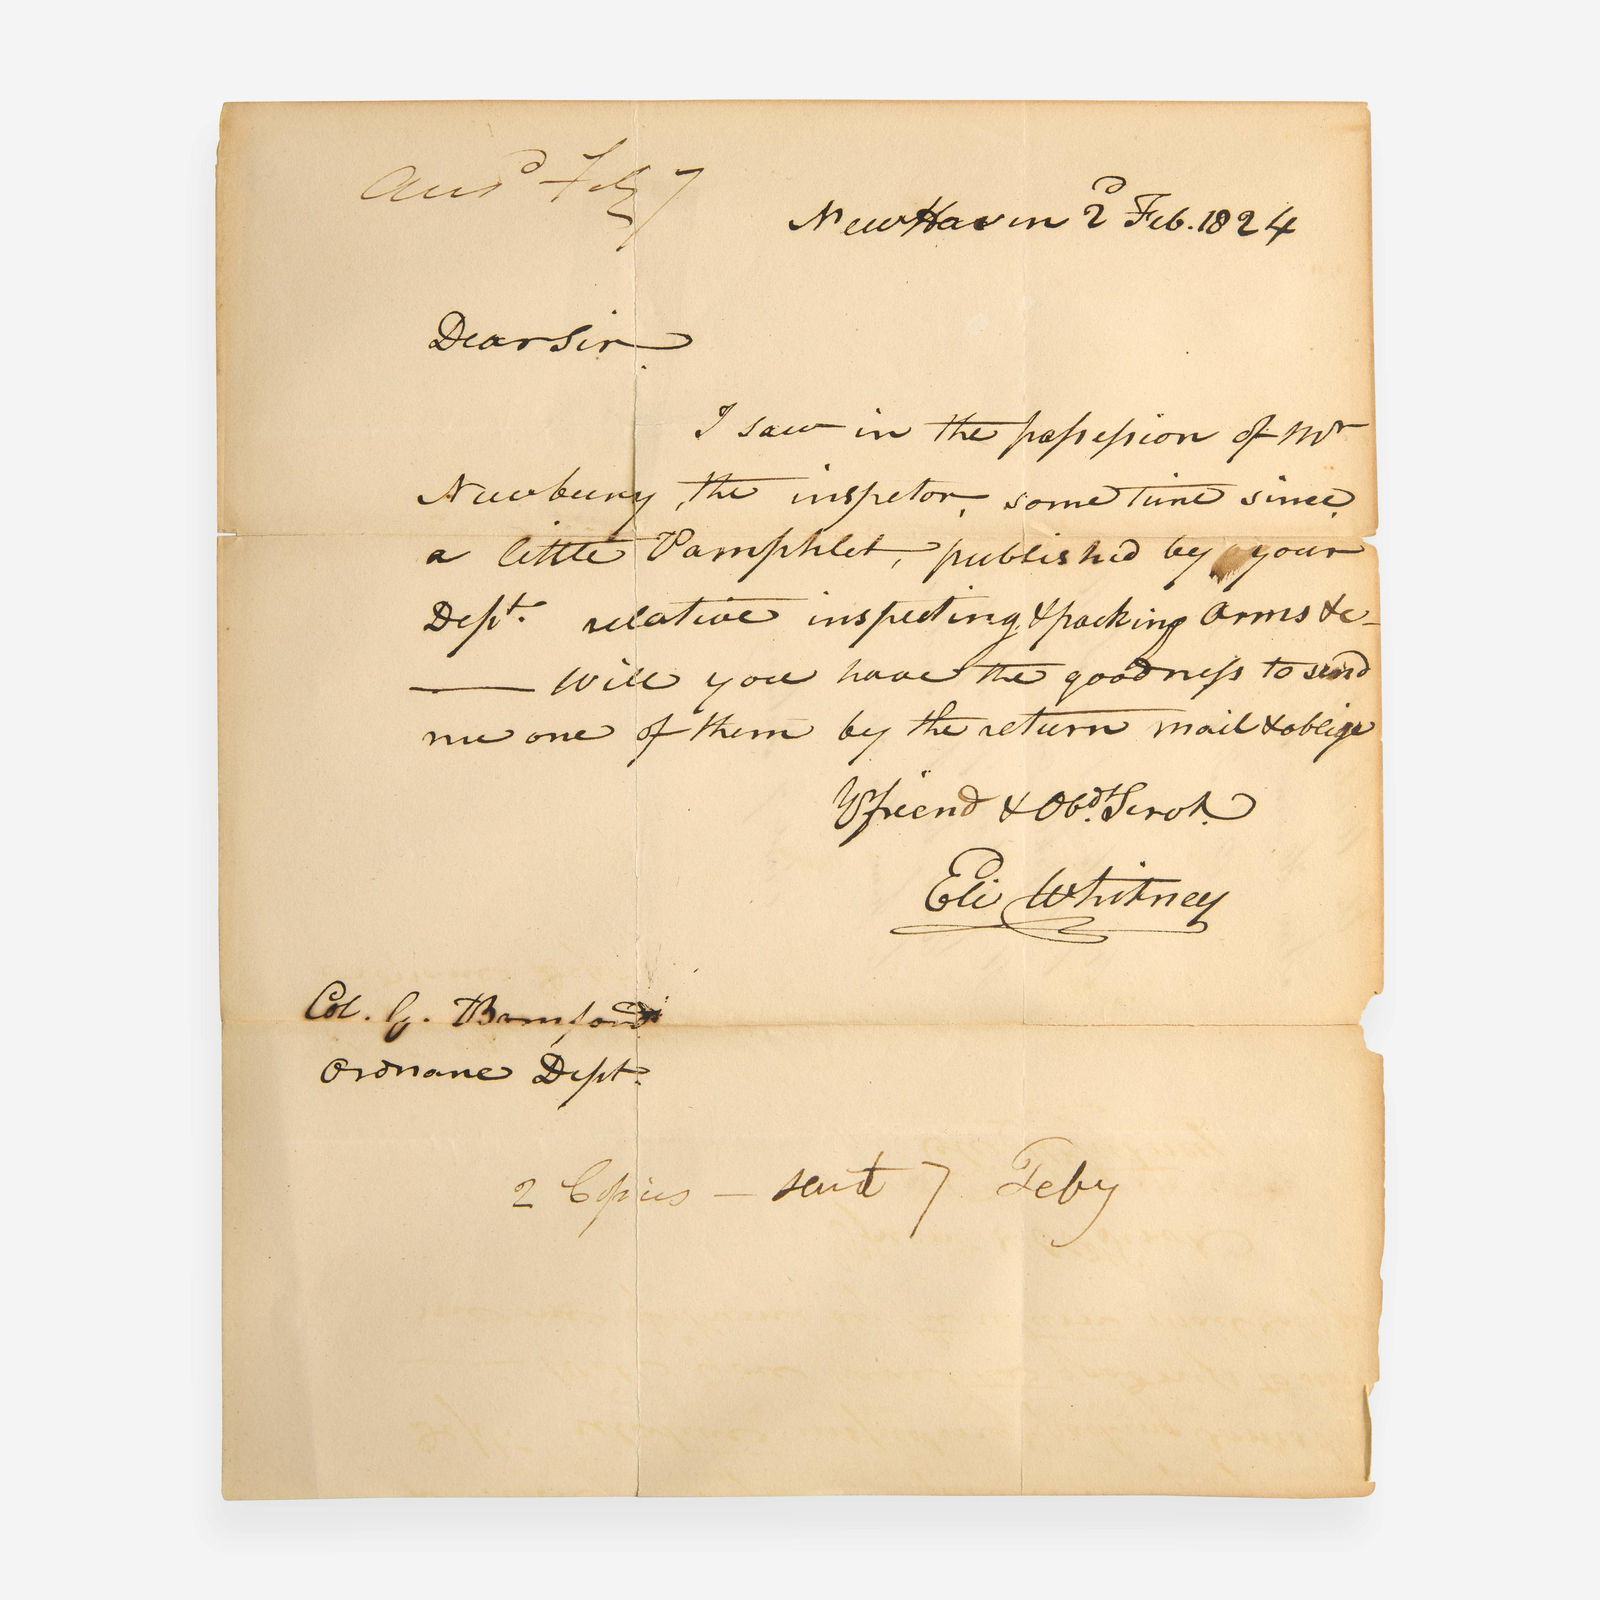 Ansd Feby 7
New Haven 2d Feb. 1824
Dear Sir
I saw in the possession of Mr
Newbury, the inspetor, some time since,
a little Pamphlet, published by your
Dept. relative inspecting & packing Arms &c-
— Will you have the goodness to send
me one of them by the return mail & oblige
Yr friend & Obdt. Servt.
Eli Whitney
Col. G. Bomford
Ordnane Dept.
2 Copies — sent 7 Feby